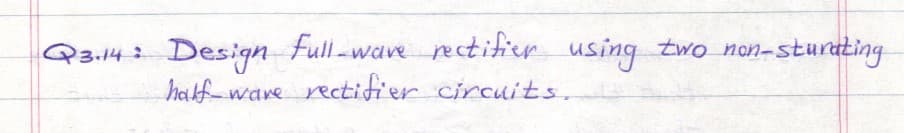 Q3.14: Design full-wave rectifier using two non-sturating
half-wave rectifier circuits.